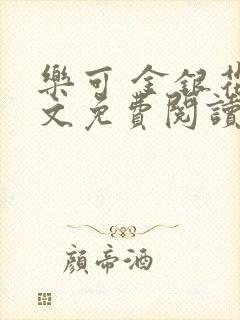 樂可 金銀花
文免費閱讀
顏帝酒